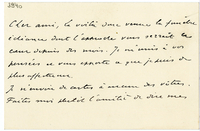 2890
Cher ami, la voilà donc venue la funèbre
échéance dont l'approche vous serrait le
cœur depuis des mois. Je m'unis à vos
pensées et vous envoie ce que j'ai de
plus affectueux.
Je n'envoie de cartes à aucun des vôtres.
Faites moi plutôt l'amitié de dire mes